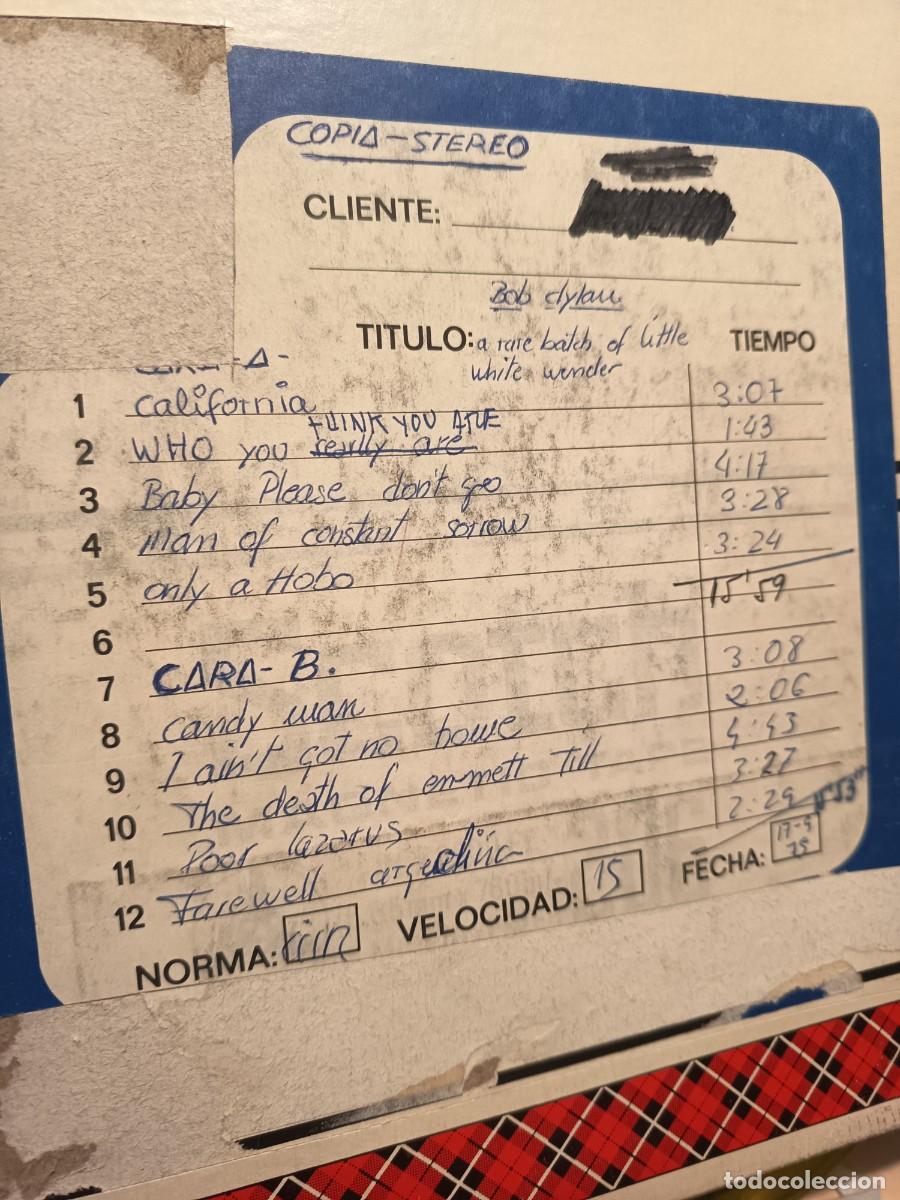 COPIA-STEREO
CLIENTE:
Bob dylan
TITULO: a rare batch of little TIEMPO
white wonder
-A-
1 California 3:07
THINK YOU ARE
2 WHO you really are 1:43
3 Baby Please don't go 4:17
4 Man of constant sorrow 3:28
5 only a Hobo 3:24
6 15'59
7 CARA-B.
8 candy man 3:08
9 I ain't got no home 2:06
10 The death of emmett Till 4:43
11 Poor lazarus 3:27
12 Farewell angelina 2:29
NORMA: VELOCIDAD: 15 FECHA: 17-9
75
todocoleccion